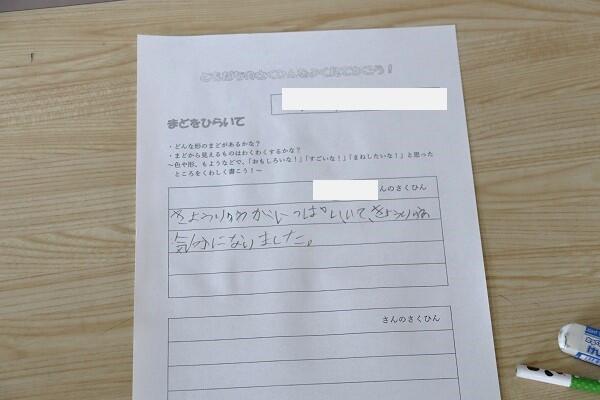 ともだちのさくひんをよく見てかこう！
まどをひらいて
・どんな形のまどがあるかな？
・まどから見えるものはわくわくするかな？
～色や形、もようなどで、「おもしろいな！」「すごいな！」「まねしたいな！」と思った
ところをくわしく書こう！～
んのさくひん
きょうりゅうがいっぱいいて、きょうりゅう
気分になりました。
さんのさくひん